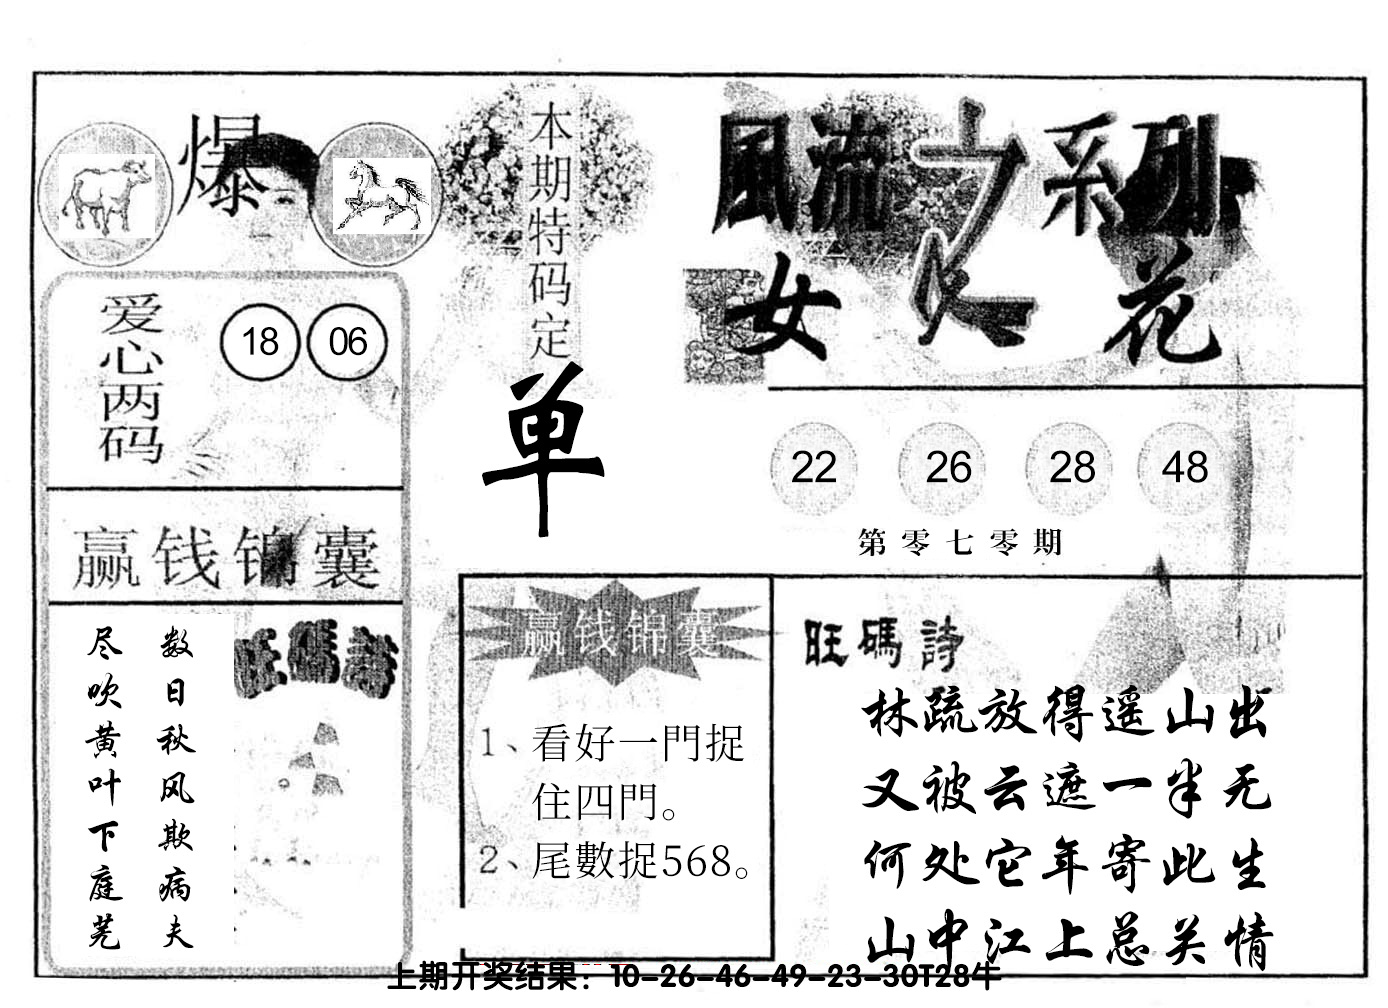 爆
本期特码定
单
風流之系列
女人花
爱心两码
18 06
22 26 28 48
第零七零期
赢钱锦囊
旺碼詩
数日秋风欺病夫
尽吹黄叶下庭芜
赢钱锦囊
1、看好一門捉
住四門。
2、尾數捉568。
旺碼詩
林疏放得遥山出
又被云遮一半无
何处它年寄此生
山中江上总关情
上期开奖结果：10-26-46-49-23-30T28牛